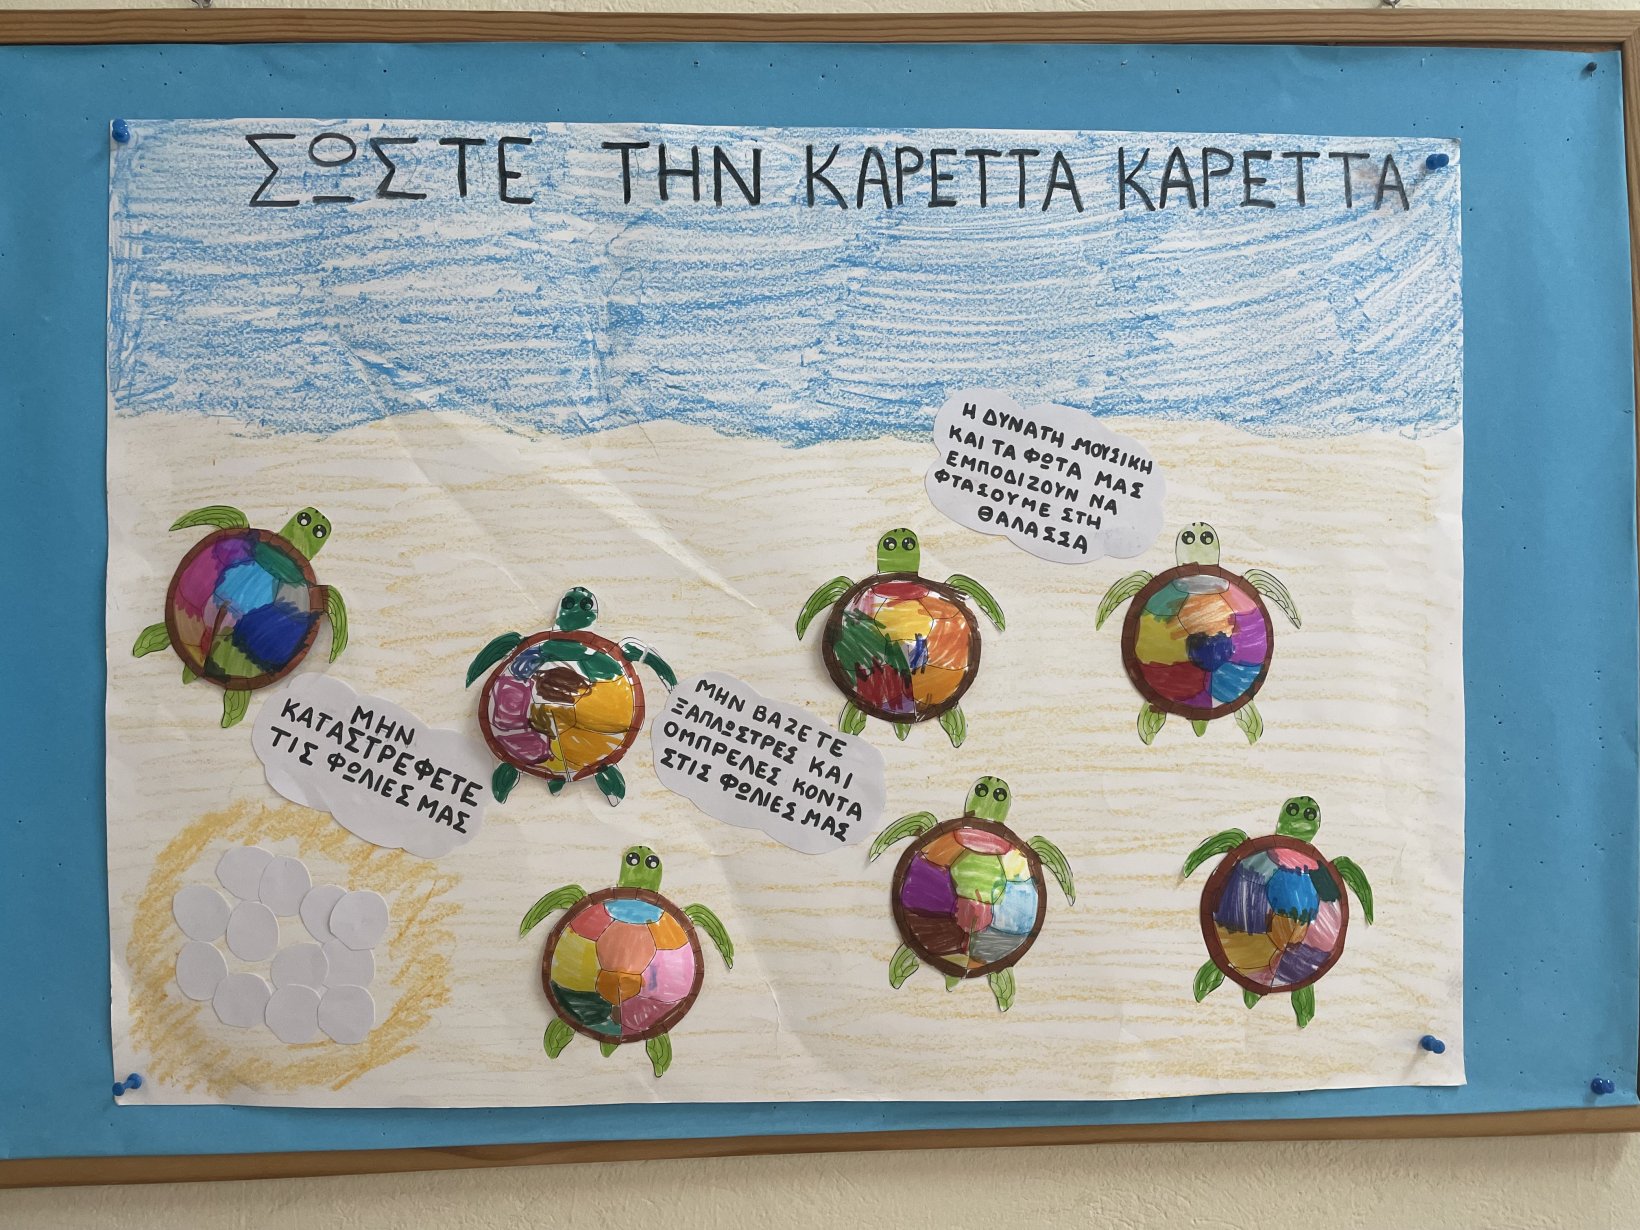 ΣΩΣΤΕ ΤΗΝ ΚΑΡΕΤΤΑ ΚΑΡΕΤΤΑ
Η ΔΥΝΑΤΗ ΜΟΥΣΙΚΗ
ΚΑΙ ΤΑ ΦΩΤΑ ΜΑΣ
ΕΜΠΟΔΙΖΟΥΝ ΝΑ
ΦΤΑΣΟΥΜΕ ΣΤΗ
ΘΑΛΑΣΣΑ
ΜΗΝ
ΚΑΤΑΣΤΡΕΦΕΤΕ
ΤΙΣ ΦΩΛΙΕΣ ΜΑΣ
ΜΗΝ ΒΑΖΕΤΕ
ΞΑΠΛΩΣΤΡΕΣ ΚΑΙ
ΟΜΠΡΕΛΕΣ ΚΟΝΤΑ
ΣΤΙΣ ΦΩΛΙΕΣ ΜΑΣ